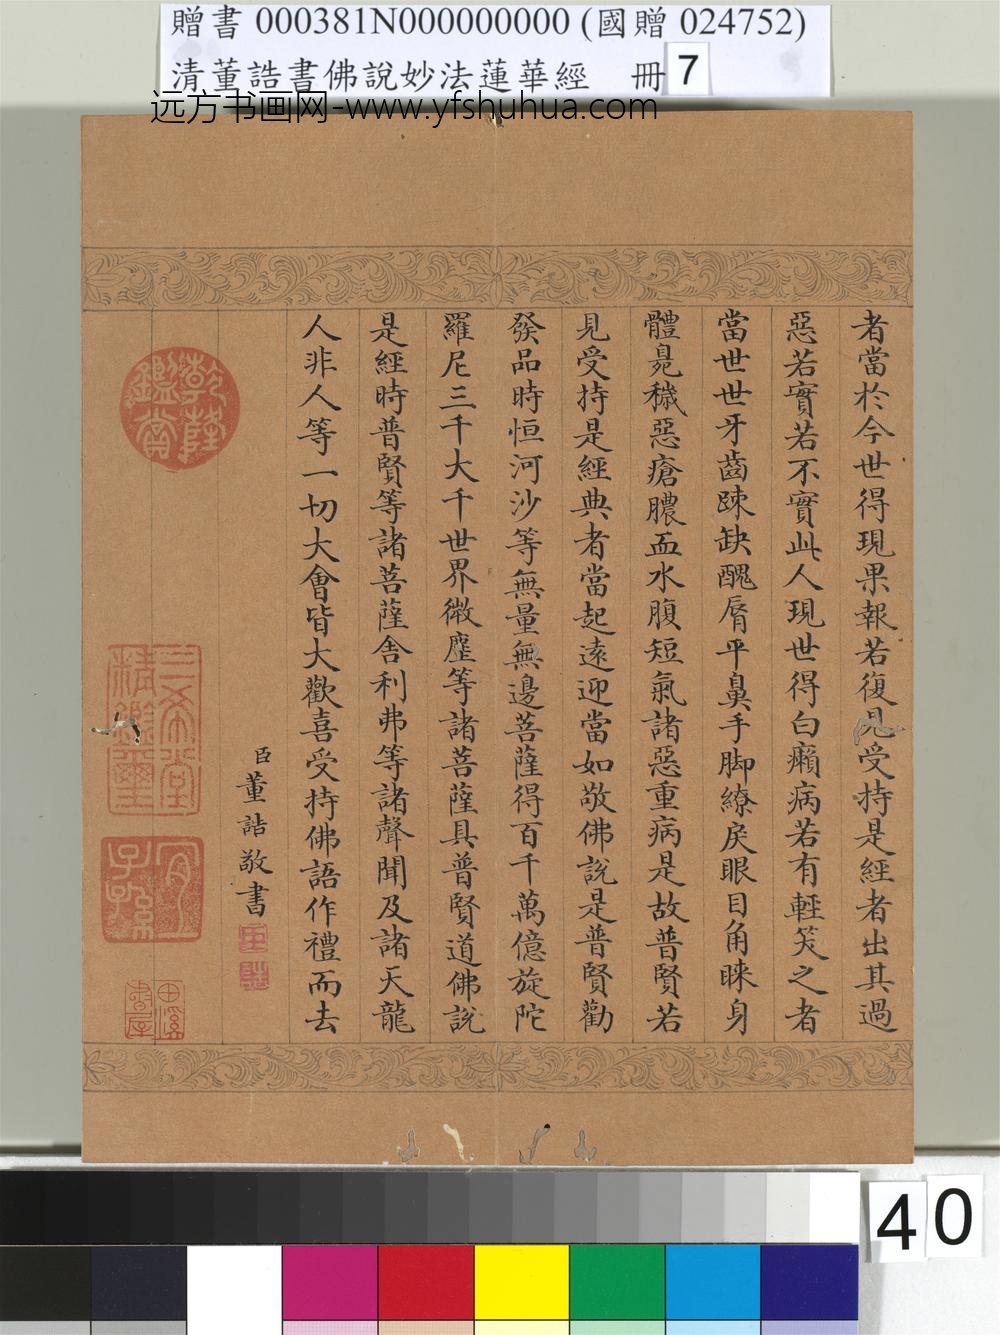 贈書 000381N000000000 (國贈 024752)
清董誥書佛說妙法蓮華經 冊 7
远方书画网-www.yfshuhua.com
者當於今世得現果報若復見受持是經者出其過
惡若實若不實此人現世得白癩病若有輕笑之者
當世世牙齒踈缺醜脣平鼻手脚繚戾眼目角睞身
體臭穢惡瘡膿血水腹短氣諸惡重病是故普賢若
見受持是經典者當起遠迎當如敬佛說是普賢勸
發品時恒河沙等無量無邊菩薩得百千萬億旋陀
羅尼三千大千世界微塵等諸菩薩具普賢道佛說
是經時普賢等諸菩薩舍利弗等諸聲聞及諸天龍
人非人等一切大會皆大歡喜受持佛語作禮而去
臣董誥敬書
臣
誥
乾隆鑑賞
三希堂精鑑璽
宜子孫
40